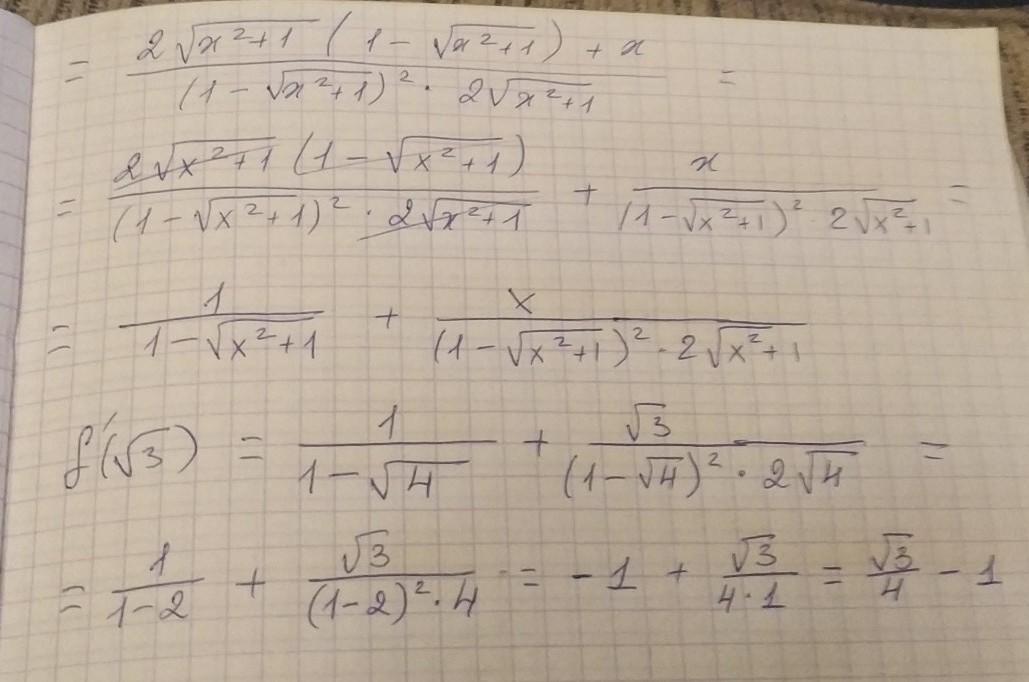 = (2√(x²+1) (1 - √(x²+1)) + x) / ((1 - √(x²+1))² · 2√(x²+1)) =
= (2√(x²+1) (1 - √(x²+1))) / ((1 - √(x²+1))² · 2√(x²+1)) + x / ((1 - √(x²+1))² · 2√(x²+1)) =
= 1 / (1 - √(x²+1)) + x / ((1 - √(x²+1))² · 2√(x²+1))
f'(√3) = 1 / (1 - √4) + √3 / ((1 - √4)² · 2√4) =
= 1 / (1 - 2) + √3 / ((1 - 2)² · 4) = - 1 + √3 / (4 · 1) = √3 / 4 - 1